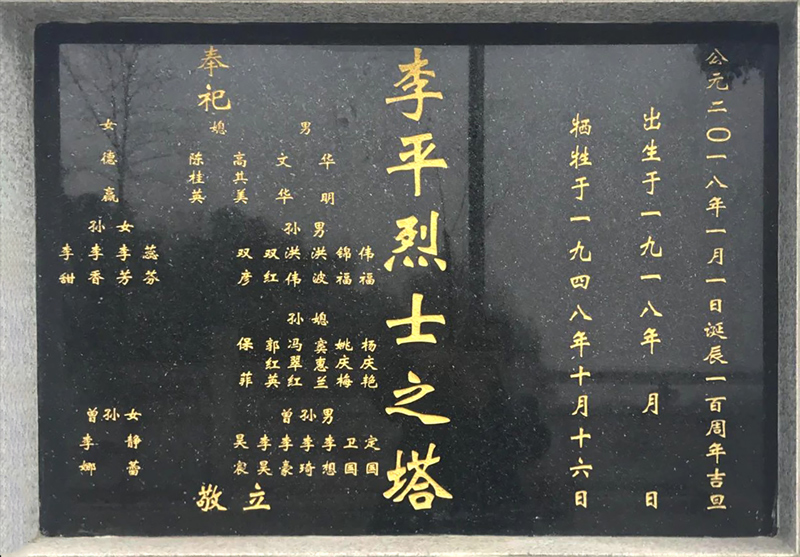 公元二〇一八年一月一日诞辰一百周年吉旦
出生于一九一八年 月 日
牺牲于一九四八年十月十六日
李平烈士之塔
奉祀
男
华明
文华
媳
高其美
陈桂英
女
德赢
孙男
伟福
锦福
洪波
洪伟
双红
双彦
孙女
蕊芬
李芳
李香
李甜
孙媳
杨庆艳
姚庆梅
窦惠兰
冯翠红
郭红英
保菲
曾孙男
定国
卫国
李想
李琦
李豪
李昊
曾孙女
静蕾
李娜
敬立